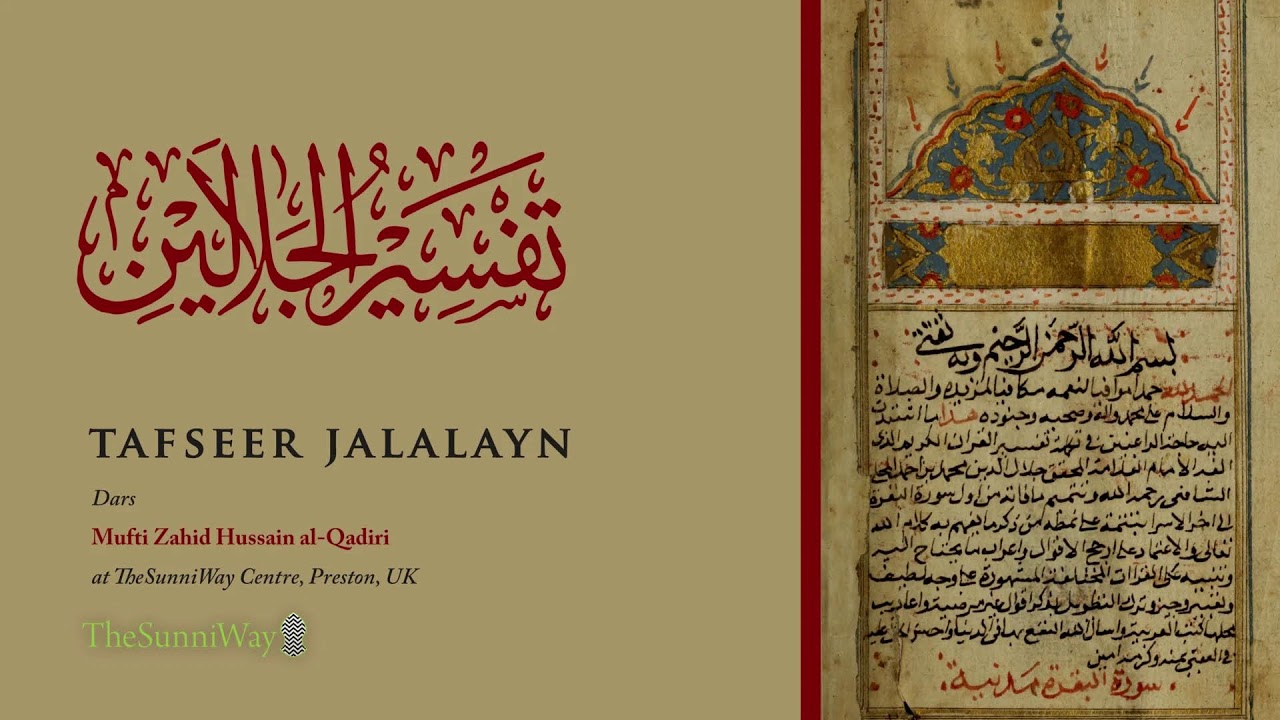 تَفْسِيرُ الجَلَالَيْنِ
TAFSEER JALALAYN
Dars
Mufti Zahid Hussain al-Qadiri
at TheSunniWay Centre, Preston, UK
TheSunniWay
بسم الله الرحمن الرحيم وبه ثقتي
الحمد لله حمدا موافيا لنعمه مكافيا لمزيده والصلاة
والسلام على محمد واله وصحبه وجنوده هذا ما اشتدت
اليه حاجة الراغبين في تفسير القران الكريم الذي
الفه الامام العلامة المحقق جلال الدين محمد بن احمد المحلي
الشافعي رحمه الله وتتميم ما فاته من اول سورة البقرة
الى اخر الاسرا بتتمة على نمطه من ذكر ما يفهم به كلام الله
تعالى والاعتماد على ارجح الاقوال واعراب ما يحتاج اليه
وتنبيه على القراات المختلفة المشهورة على وجه لطيف
وتعبير وجيز وترك التطويل بذكر اقوال غير مرضية واعاريب
محلها كتب العربية واسال الله النفع به في الدنيا واحسن الجزا عليه
في العقبى بمنه وكرمه امين
سورة البقرة مدنية